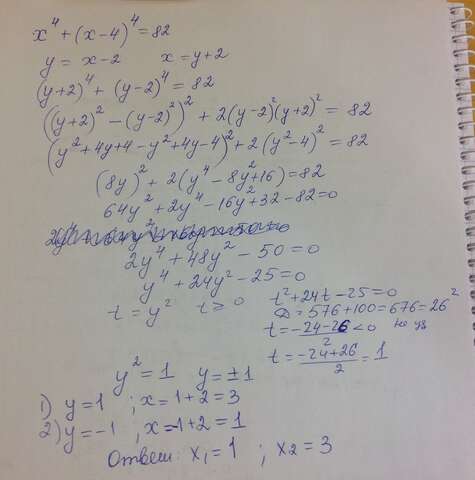 x⁴ + (x-4)⁴ = 82
y = x-2 x = y+2
(y+2)⁴ + (y-2)⁴ = 82
((y+2)² - (y-2)²)² + 2(y-2)²(y+2)² = 82
(y²+4y+4 - y²+4y-4)² + 2(y²-4)² = 82
(8y)² + 2(y⁴ - 8y²+16) = 82
64y² + 2y⁴ - 16y² + 32 - 82 = 0
2y⁴ + 48y² - 50 = 0
y⁴ + 24y² - 25 = 0
t = y² t ≥ 0
t² + 24t - 25 = 0
D = 576 + 100 = 676 = 26²
t = (-24-26)/2 < 0 не уд
t = (-24+26)/2 = 1
y² = 1 y = ±1
1) y = 1 ; x = 1+2 = 3
2) y = -1 ; x = -1+2 = 1
Ответ: x₁ = 1 ; x₂ = 3